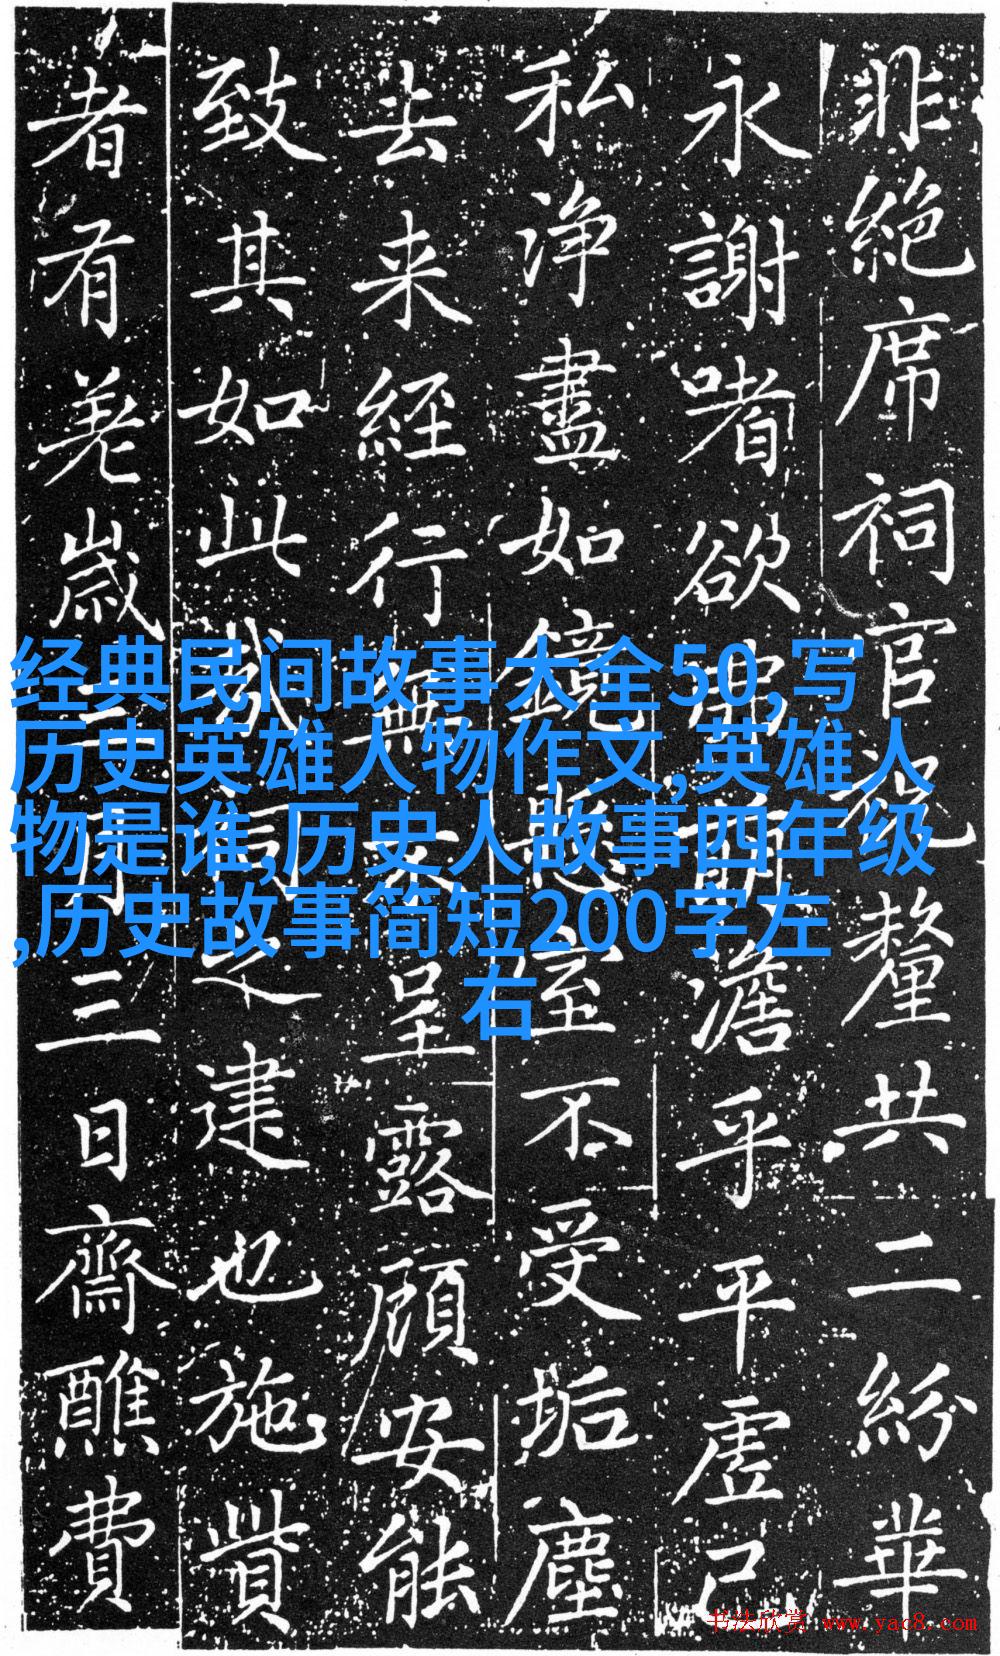 非絶席祠官祝釐共二紛華
永謝嗜欲弗萌澹乎平虛己
私淨盡如鏡懸室不受垢塵
去来經行無呈露顧安能
致其如此哉祠之建也施貲
者有羌歲三月三日齋醮費
经典民间故事大全50,写
历史英雄人物作文,英雄人
物是谁,历史人故事四年级
,历史故事简短200字左
右
书法欣赏 www.yac8.com